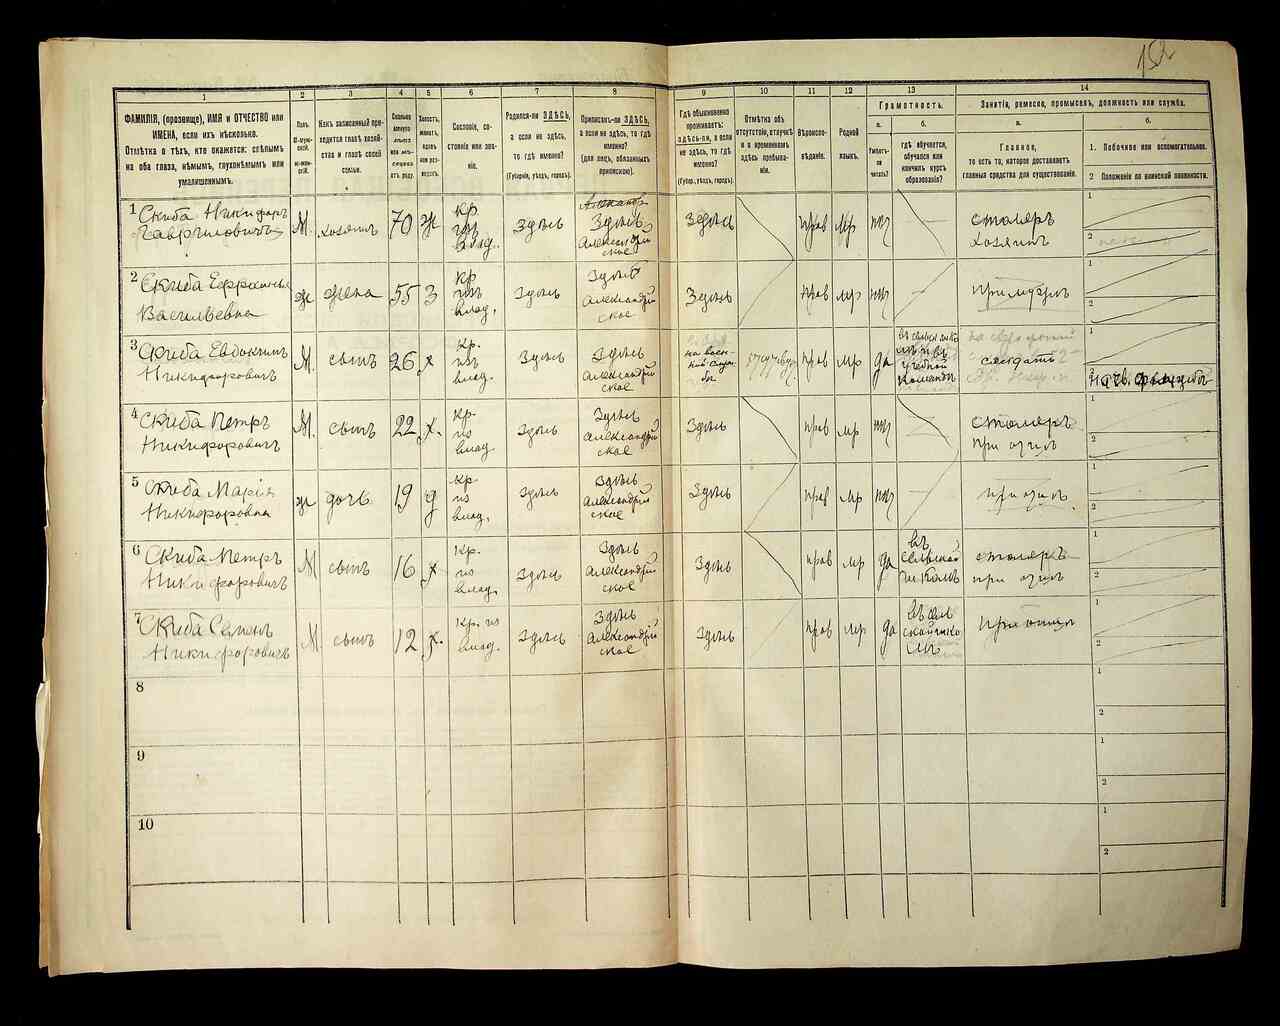 152
1
2
3
4
5
6
7
8
9
10
11
12
13
14
ФАМИЛІЯ, (прозвище), ИМЯ и ОТЧЕСТВО или
ИМЕНА, если ихъ нѣсколько.
Отмѣтка о тѣхъ, кто окажется: слѣпымъ
на оба глаза, нѣмымъ, глухонѣмымъ или
умалишеннымъ.
Полъ
М-муж-
ской.
ж-жен-
скій.
Какъ записанный при-
ходится главѣ хозяй-
ства и главѣ своей
семьи.
Сколько
минуло
лѣтъ
или мѣ-
сяцевъ
отъ роду.
Холостъ,
женатъ,
вдовъ
или раз-
веденъ.
Сословіе, со-
стояніе или зва-
ніе.
Родился-ли ЗДѢСЬ,
а если не здѣсь,
то гдѣ именно?
(Губернія, уѣздъ, городъ).
Приписанъ-ли ЗДѢСЬ,
а если не здѣсь, то гдѣ
именно?
(для лицъ, обязанныхъ
припискою).
Гдѣ обыкновенно
проживаетъ:
здѣсь-ли, а если
не здѣсь, то гдѣ
именно?
(Губер., уѣздъ, городъ).
Отмѣтка объ
отсутствіи, отлучкѣ
и о временномъ
здѣсь пребыва-
ніи.
Вѣроиспо-
вѣданіе.
Родной
языкъ.
Грамотность.
а.
б.
Умѣетъ-
ли
читать?
гдѣ обучается,
обучался или
кончилъ курсъ
образованія?
Занятіе, ремесло, промыселъ, должность или служба.
а.
б.
Главное,
то есть то, которое доставляетъ
главныя средства для существованія.
1. Побочное или вспомогательное.
2 Положеніе по воинской повинности.
1 Скиба Никифоръ
Гавриловичъ
М.
хозяинъ
70
ж
Кр.
изъ
влад.
Здѣсь
Здѣсь
Александрій
ское
Здѣсь
прав
мр
нѣт
столяръ
хозяинъ
1
2
2 Скиба Ефросинья
Васильевна
ж
жена
55
З
Кр
изъ
влад.
Здѣсь
Здѣсь
Александрій
ское
Здѣсь
прав
мр
нѣт
при мужѣ
1
2
3 Скиба Евдокимъ
Никифоровичъ
М.
сынъ
26
х
Кр.
изъ
влад.
Здѣсь
Здѣсь
Александрій
ское
на воен-
ной служ
бы
прав
мр
да
учебной
команды
солдатъ
1
2
4 Скиба Петръ
Никифоровичъ
М.
сынъ
22
х.
Кр.
из
влад
Здѣсь
Здѣсь
Александрій
ское
Здѣсь
прав
мр
нѣт
столяръ
при отцѣ
1
2
5 Скиба Марія
Никифоровна
ж
дочь
19
д
Кр.
из
влад.
Здѣсь
Здѣсь
Александрій
ское
Здѣсь
прав
мр
нѣт
при отцѣ
1
2
6 Скиба Петръ
Никифоровичъ
М
сынъ
16
х
Кр.
из
влад.
Здѣсь
Здѣсь
Александрій
ское
Здѣсь
прав
мр
да
въ
сельской
школѣ
столяръ
при отцѣ
1
2
7 Скиба Семенъ
Никифоровичъ
М.
сынъ
12
х.
Кр. из
влад.
Здѣсь
Здѣсь
Александрій
ское
Здѣсь
прав
мр
да
въ сел
ской шко
лѣ
при отцѣ
1
2
8
1
2
9
1
2
10
1
2